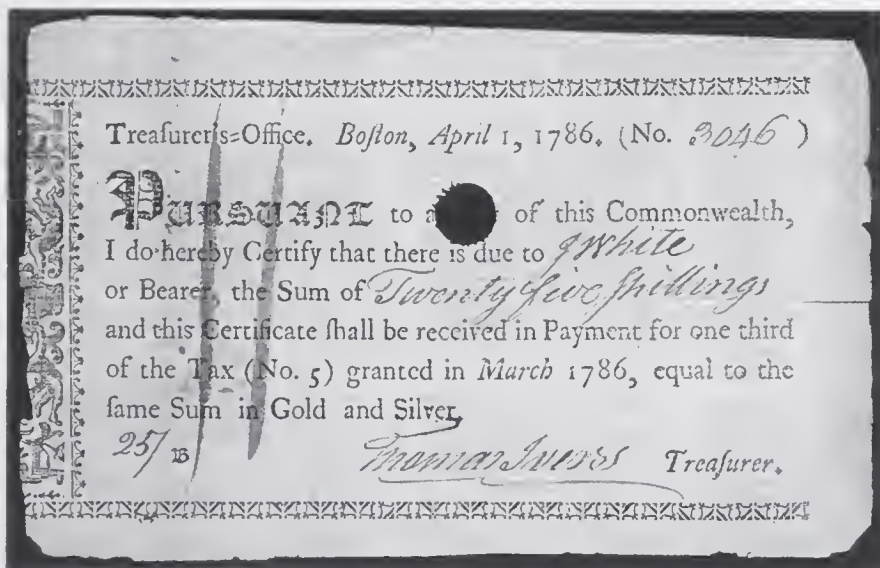 Treaſurer's=Office. Boſton, April 1, 1786. (No. 3046)
PURSUANT to a of this Commonwealth,
I do hereby Certify that there is due to J White
or Bearer, the Sum of Twenty five ſhillings
and this Certificate ſhall be received in Payment for one third
of the Tax (No. 5) granted in March 1786, equal to the
ſame Sum in Gold and Silver.
25/ B Thomas Ivers Treaſurer.